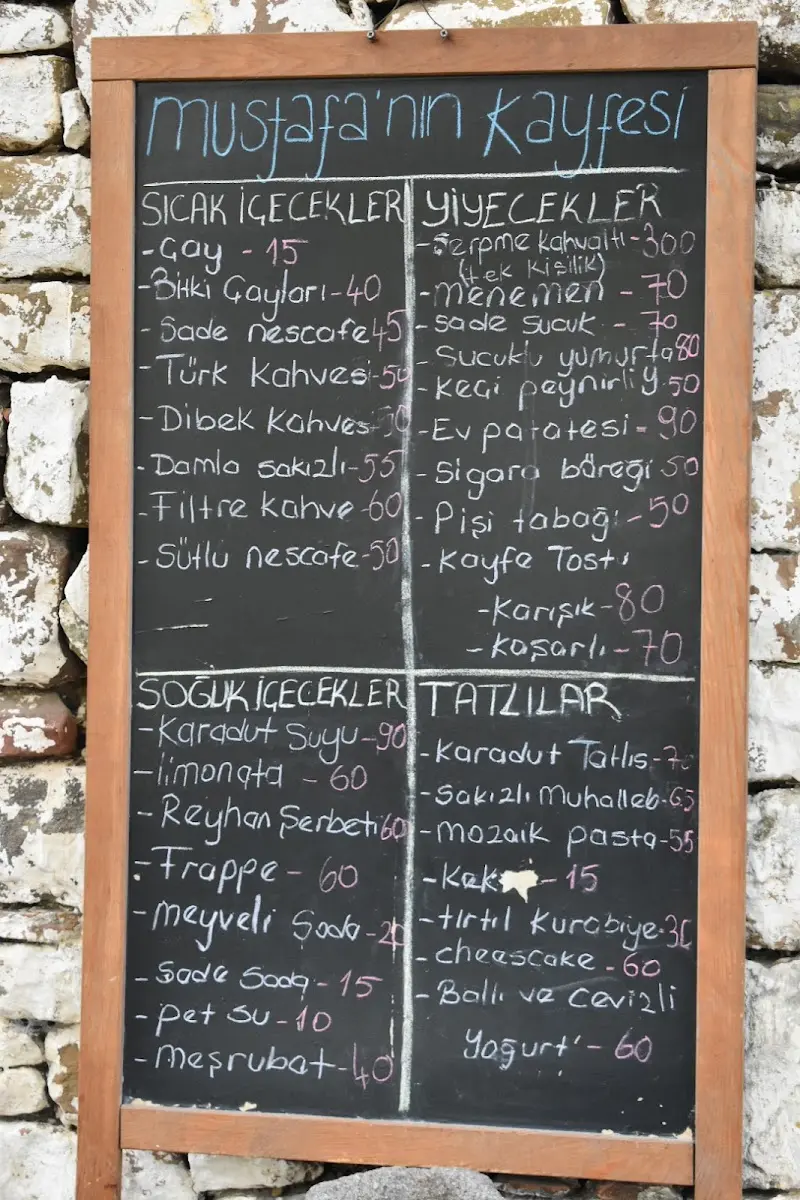 mustafa'nın Kayfesi
SICAK İÇECEKLER
-Çay - 15
-Bitki Çayları-40
-Sade nescafe 45
-Türk Kahvesi-50
-Dibek Kahves
-Damla sakızlı-55
-Filtre kahve-60
-Sütlü nescafe-50
YİYECEKLER
-Serpme kahvaltı-300
(tek kişilik)
-menemen - 70
-sade sucuk - 70
-Sucuklu yumurta 80
-Keçi peynirli 50
-Ev patatesi-90
-Sigara böreği 50
-Pişi tabağı-50
-Kayfe Tostı
-Karışık-80
-Kaşarlı-70
SOĞUK İÇECEKLER
-Karadut Suyu-90
-limonata - 60
-Reyhan Şerbeti 60
-Frappe - 60
-meyveli Soda-20
-Sade Soda-15
-pet su-10
-meşrubat-40
TATLILAR
-Karadut Tatlıs-70
-Sakızlı Muhalleb-65
-mozaik pasta-55
-Kek - 15
-tırtıl Kurabiye-30
-cheescake-60
-Ballı ve cevizli
Yoğurt - 60